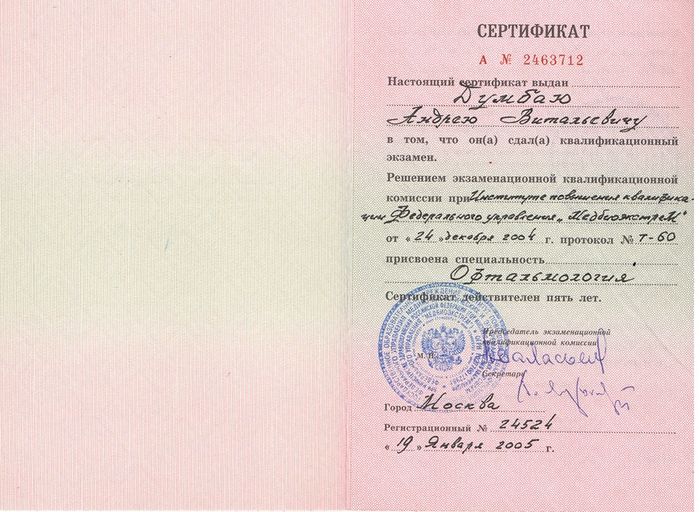 СЕРТИФИКАТ
А № 2463712
Настоящий сертификат выдан
Думбаю
Андрею Витальевичу
в том, что он(а) сдал(а) квалификационный
экзамен.
Решением экзаменационной квалификационной
комиссии при Институте повышения квалифика-
ции Федерального управления „Медбиоэкстрем"
от « 24 » декабря 2004 г. протокол № Т-60
присвоена специальность
Офтальмология
Сертификат действителен пять лет.
Председатель экзаменационной
квалификационной комиссии
М. П.
Секретарь
Город Москва
Регистрационный № 24524
« 19 » Января 2005 г.